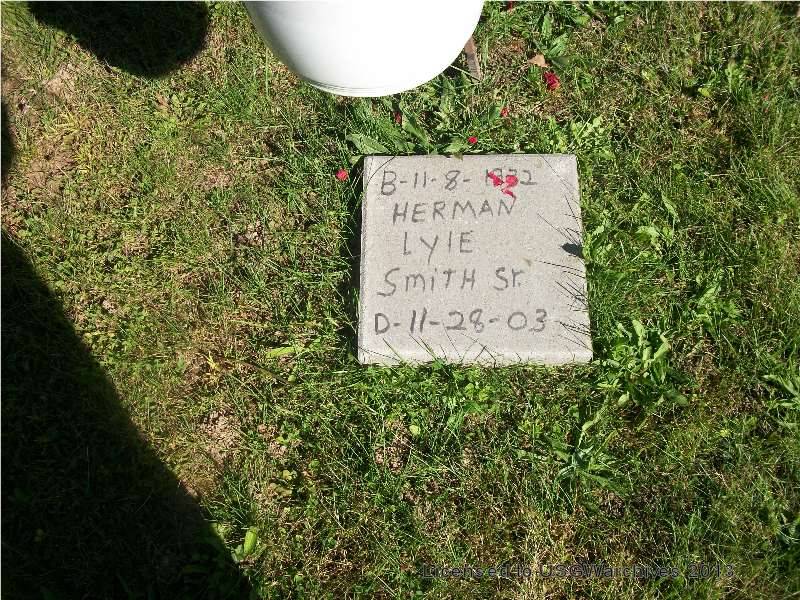 B-11-8-
HERMAN
LYlE
SmiTH Sr.
D-11-28-03
Licensed to USGWarchives 2013